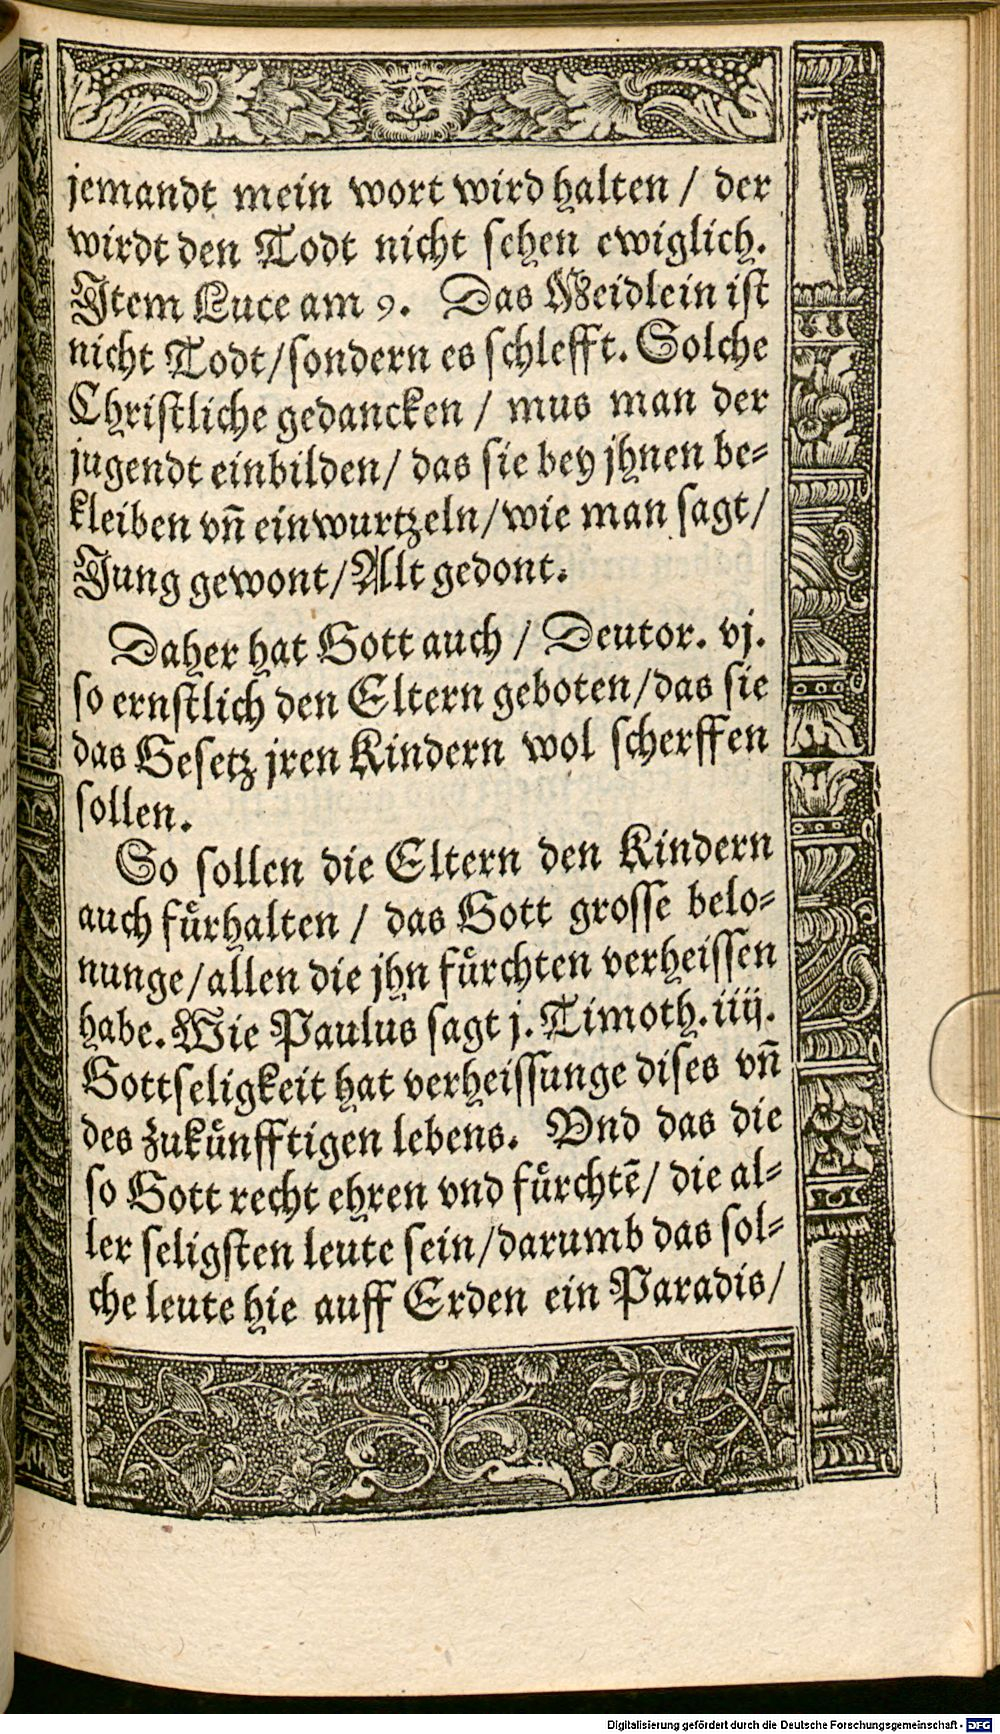 jemandt mein wort wird halten / der
wirdt den Todt nicht sehen ewiglich.
Item Luce am 9. Das Meidlein ist
nicht Todt/sondern es schlefft. Solche
Christliche gedancken / mus man der
jugendt einbilden/ das sie bey jhnen be-
kleiben vn̄ einwurtzeln/wie man sagt/
Jung gewont/Alt gedont.
Daher hat Gott auch / Deutor. vj.
so ernstlich den Eltern geboten/das sie
das Gesetz jren Kindern wol scherffen
sollen.
So sollen die Eltern den Kindern
auch fuͤrhalten / das Gott grosse belo-
nunge/allen die jhn fuͤrchten verheissen
habe. Wie Paulus sagt j. Timoth. iiij.
Gottseligkeit hat verheissunge dises vn̄
des zukuͤnfftigen lebens. Vnd das die
so Gott recht ehren vnd fuͤrchtē/ die al-
ler seligsten leute sein/darumb das sol-
che leute hie auff Erden ein Paradis/
Digitalisierung gefördert durch die Deutsche Forschungsgemeinschaft - DFG